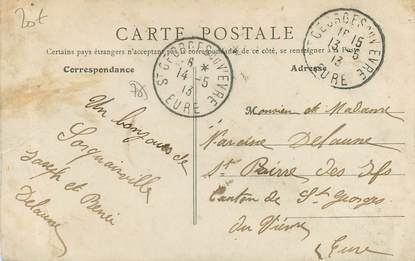 20t
CARTE POSTALE
Certains pays étrangers n'acceptant pas la correspondance de ce côté, se renseigner à la Poste
Correspondance
Adresse
ST GEORGES-DU-VIEVRE
6 *
14 -5
13
EURE
ST GEORGES-DU-VIEVRE
16 15
13 -5
13
EURE
Un bonjour de
Joseph et
Delaune
Monsieur et Madame
Narcisse Delaune
St Pierre des Ifs
Canton de St Georges
du Vièvre
Eure